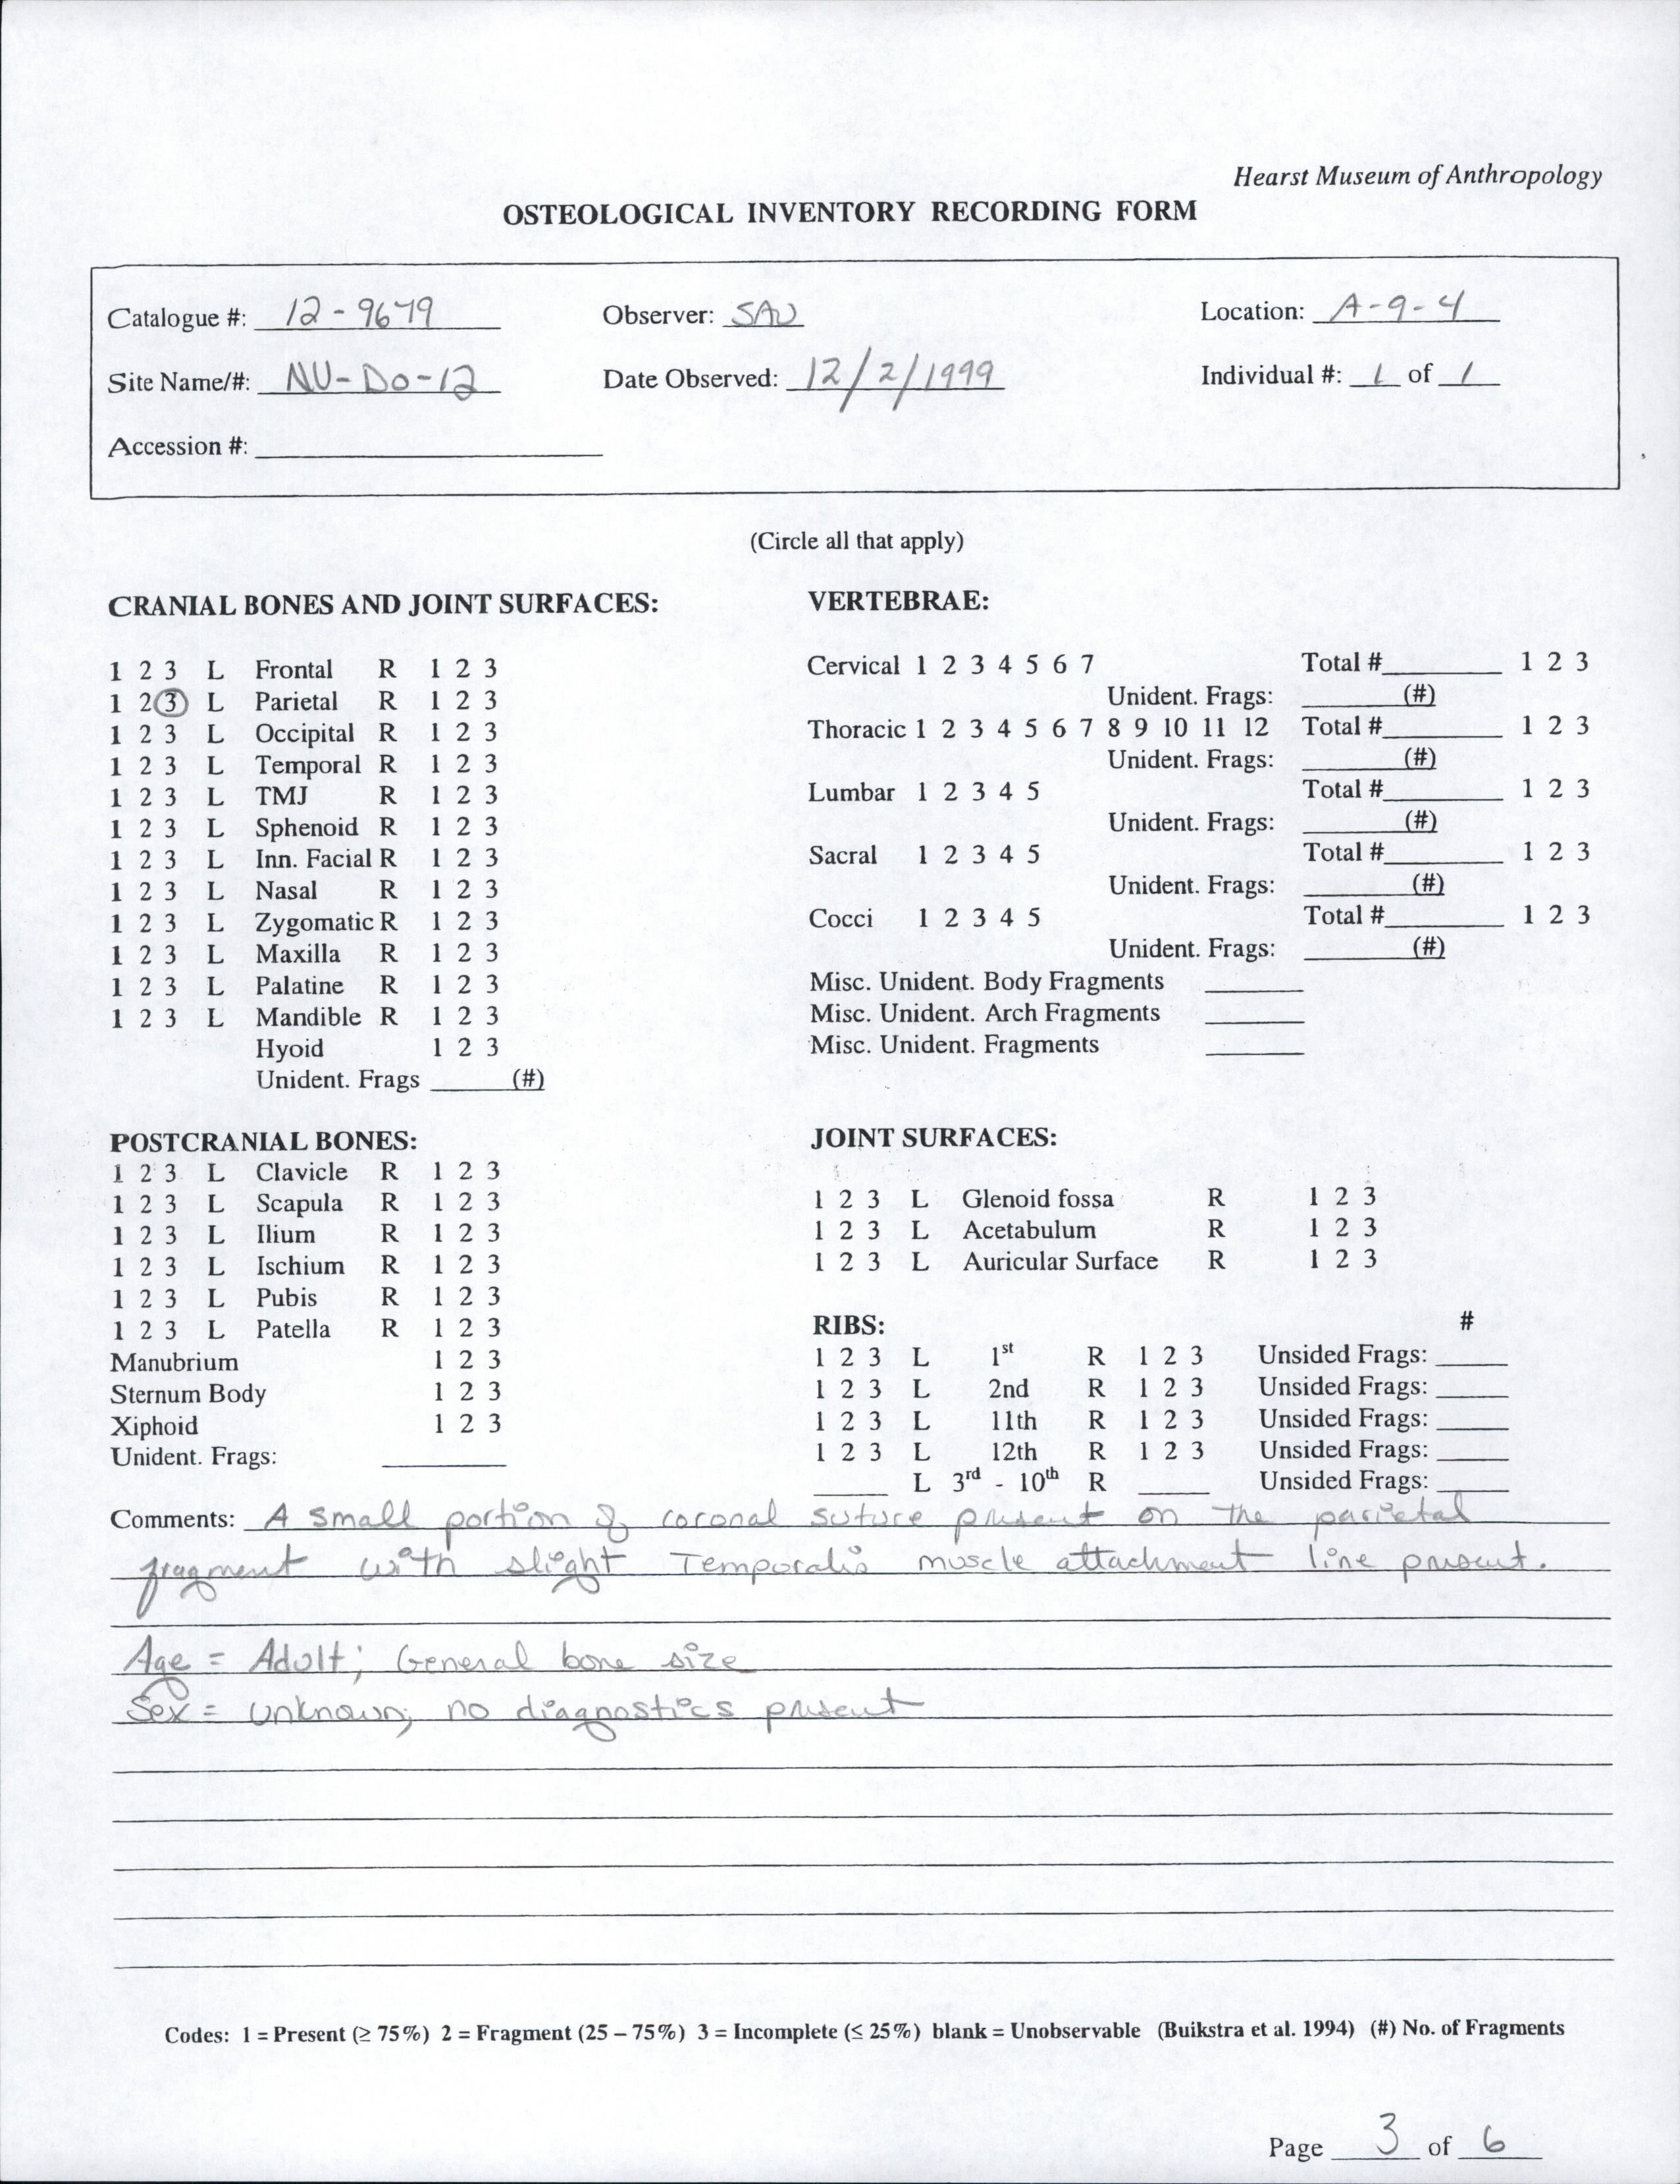 Hearst Museum of Anthropology
OSTEOLOGICAL INVENTORY RECORDING FORM
Catalogue #: 12-9679 Observer: SAU Location: A-9-4
Site Name/#: NU-Do-12 Date Observed: 12/2/1999 Individual #: 1 of 1
Accession #:
(Circle all that apply)
CRANIAL BONES AND JOINT SURFACES:
1 2 3 L Frontal R 1 2 3
1 2 3 L Parietal R 1 2 3
1 2 3 L Occipital R 1 2 3
1 2 3 L Temporal R 1 2 3
1 2 3 L TMJ R 1 2 3
1 2 3 L Sphenoid R 1 2 3
1 2 3 L Inn. Facial R 1 2 3
1 2 3 L Nasal R 1 2 3
1 2 3 L Zygomatic R 1 2 3
1 2 3 L Maxilla R 1 2 3
1 2 3 L Palatine R 1 2 3
1 2 3 L Mandible R 1 2 3
Hyoid 1 2 3
Unident. Frags (#)
VERTEBRAE:
Cervical 1 2 3 4 5 6 7 Total # 1 2 3
Unident. Frags: (#)
Thoracic 1 2 3 4 5 6 7 8 9 10 11 12 Total # 1 2 3
Unident. Frags: (#)
Lumbar 1 2 3 4 5 Total # 1 2 3
Unident. Frags: (#)
Sacral 1 2 3 4 5 Total # 1 2 3
Unident. Frags: (#)
Cocci 1 2 3 4 5 Total # 1 2 3
Unident. Frags: (#)
Misc. Unident. Body Fragments
Misc. Unident. Arch Fragments
Misc. Unident. Fragments
POSTCRANIAL BONES:
1 2 3 L Clavicle R 1 2 3
1 2 3 L Scapula R 1 2 3
1 2 3 L Ilium R 1 2 3
1 2 3 L Ischium R 1 2 3
1 2 3 L Pubis R 1 2 3
1 2 3 L Patella R 1 2 3
Manubrium 1 2 3
Sternum Body 1 2 3
Xiphoid 1 2 3
Unident. Frags:
JOINT SURFACES:
1 2 3 L Glenoid fossa R 1 2 3
1 2 3 L Acetabulum R 1 2 3
1 2 3 L Auricular Surface R 1 2 3
RIBS: #
1 2 3 L 1st R 1 2 3 Unsided Frags:
1 2 3 L 2nd R 1 2 3 Unsided Frags:
1 2 3 L 11th R 1 2 3 Unsided Frags:
1 2 3 L 12th R 1 2 3 Unsided Frags:
L 3rd - 10th R Unsided Frags:
Comments: A small portion of coronal suture present on the parietal
fragment with slight Temporalis muscle attachment line present.
Age = Adult; General bone size
Sex = unknown; no diagnostics present
Codes: 1 = Present (≥ 75%) 2 = Fragment (25 – 75%) 3 = Incomplete (≤ 25%) blank = Unobservable (Buikstra et al. 1994) (#) No. of Fragments
Page 3 of 6